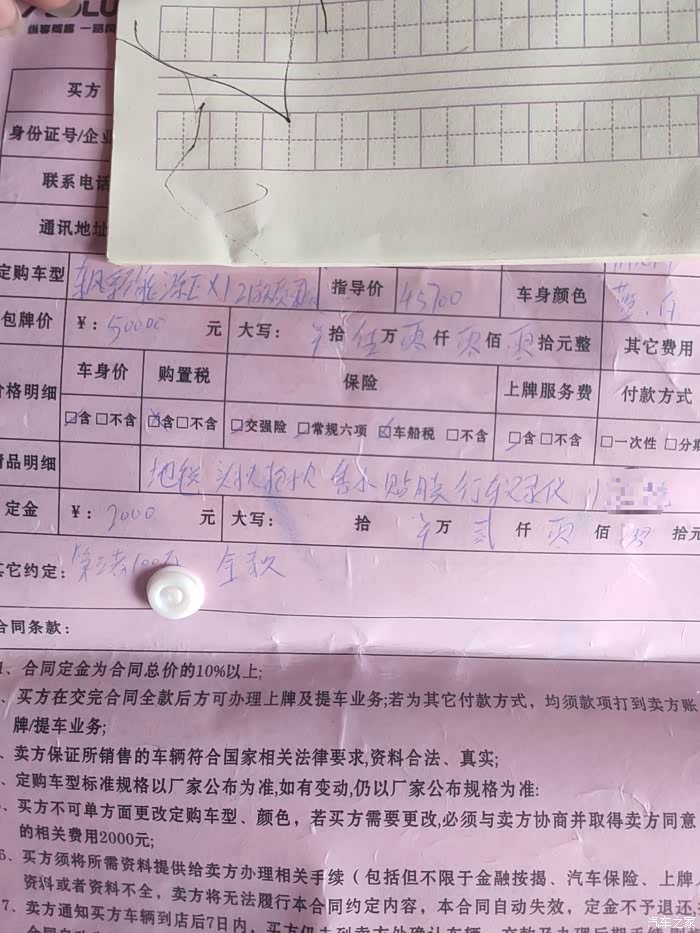 纵容辉露 一路同
买方
身份证号/企业
联系电话
通讯地址
定购车型 指导价 45700 车身颜色 蓝、白
包牌价 ¥: 50000 元 大写: 拾 伍万 零仟 零佰 零拾元整 其它费用
价格明细 车身价 购置税 保险 上牌服务费 付款方式
☑含□不含 ☑含□不含 ☑交强险 ☑常规六项 ☑车船税 □不含 ☑含□不含 □一次性 □分期
精品明细 地毯 头枕抱枕 香水 贴膜 行车记录仪
定金 ¥: 2000 元 大写: 拾 万 贰仟 零佰 拾元
其它约定: 第三者100万 全款
合同条款:
1、合同定金为合同总价的10%以上;
、买方在交完合同全款后方可办理上牌及提车业务;若为其它付款方式，均须款项打到卖方账
牌/提车业务;
、卖方保证所销售的车辆符合国家相关法律要求,资料合法、真实;
、定购车型标准规格以厂家公布为准,如有变动,仍以厂家公布规格为准:
、买方不可单方面更改定购车型、颜色，若买方需要更改,必须与卖方协商并取得卖方同意
的相关费用2000元;
6、买方须将所需资料提供给卖方办理相关手续（包括但不限于金融按揭、汽车保险、上牌
资料或者资料不全，卖方将无法履行本合同约定内容，本合同自动失效，定金不予退还
7、卖方通知买方车辆到店后7日内，买方仍未到卖方处确认车辆、交款及办理后期手续
汽车之家